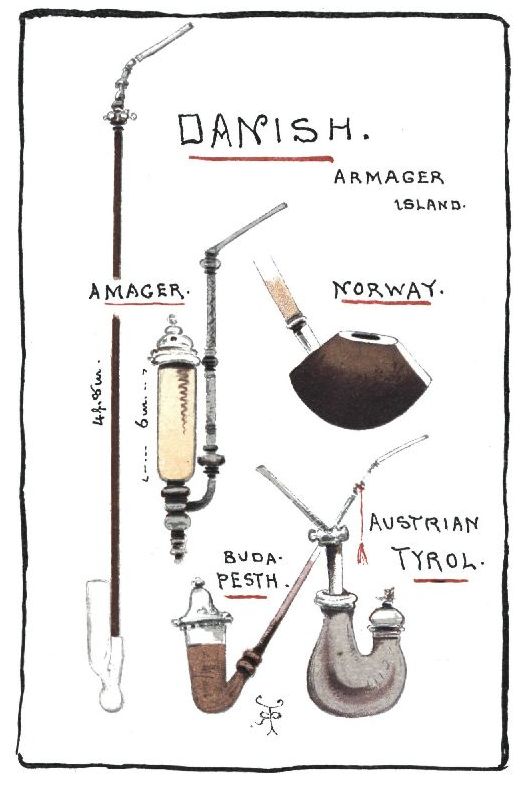 DANISH.
ARMAGER
ISLAND.
AMAGER.
NORWAY.
6 in.
AUSTRIAN
TYROL.
BUDA-
PESTH.